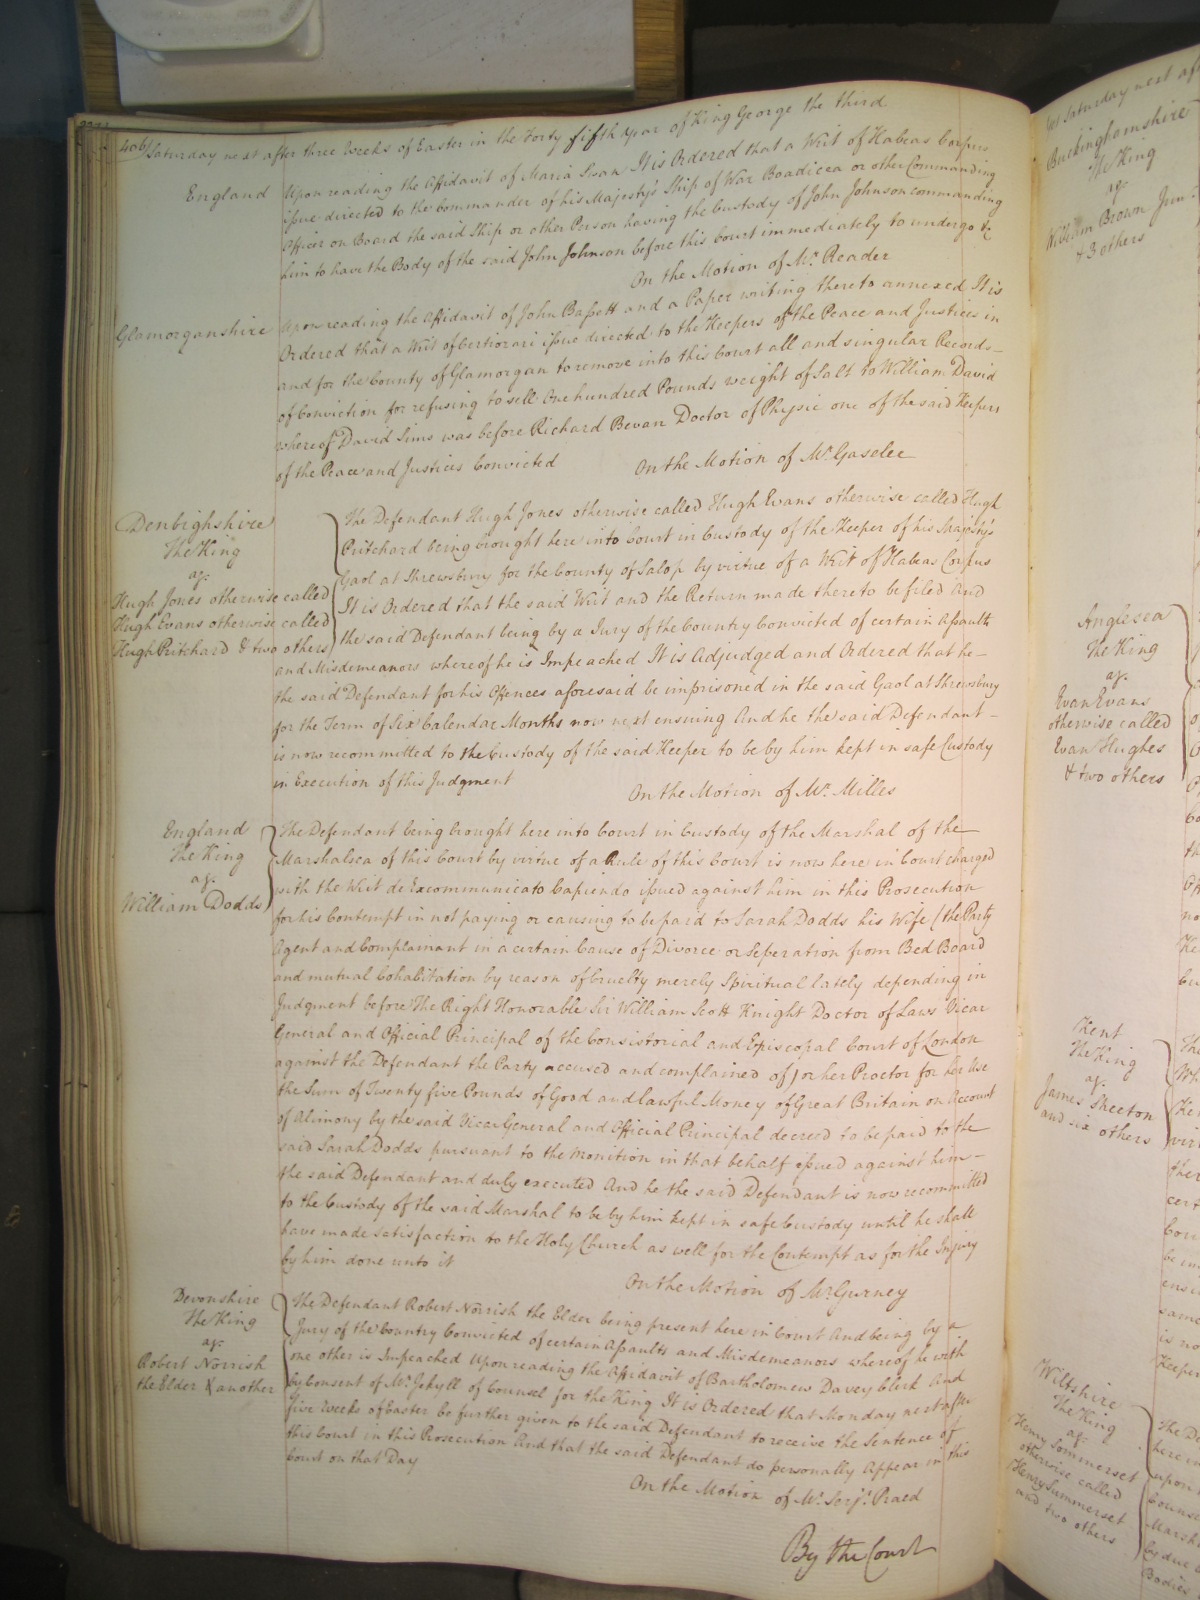 406 / Saturday next after three Weeks of Easter in the Forty fifth year of King George the third
England
Upon reading the Affidavit of Maria Swan It is Ordered that a Writ of Habeas Corpus
issue directed to the Commander of his Majesty's Ship of War Boadicea or other Commanding
Officer on Board the said Ship or other Person having the Custody of John Johnson commanding
him to have the Body of the said John Johnson before this Court immediately to undergo &c
On the Motion of Mr. Reader
Glamorganshire
Upon reading the Affidavit of John Bassett and a Paper writing thereto annexed It is
Ordered that a Writ of Certiorari issue directed to the Keepers of the Peace and Justices in
and for the County of Glamorgan to remove into this Court all and singular Records
of Conviction for refusing to sell One hundred Pounds weight of Salt to William David
whereof David Sims was before Richard Bevan Doctor of Physic one of the said Keepers
of the Peace and Justices Convicted
On the Motion of Mr. Gaselee
Denbighshire
The King
agt.
Hugh Jones otherwise called
Hugh Evans otherwise called
Hugh Pritchard & two others
The Defendant Hugh Jones otherwise called Hugh Evans otherwise called Hugh
Pritchard being brought here into Court in Custody of the Keeper of his Majesty's
Gaol at Shrewsbury for the County of Salop by virtue of a Writ of Habeas Corpus
It is Ordered that the said Writ and the Return made thereto be filed And
the said Defendant being by a Jury of the Country Convicted of certain Assaults
and Misdemeanors whereof he is Impeached It is Adjudged and Ordered that he
the said Defendant for his Offences aforesaid be imprisoned in the said Gaol at Shrewsbury
for the Term of Six Calendar Months now next ensuing And he the said Defendant
is now recommitted to the Custody of the said Keeper to be by him kept in safe Custody
in Execution of this Judgment
On the Motion of Mr. Milles
England
The King
agt.
William Dodds
The Defendant being brought here into Court in Custody of the Marshal of the
Marshalsea of this Court by virtue of a Rule of this Court is now here in Court charged
with the Writ de Excommunicato Capiendo issued against him in this Prosecution
for his Contempt in not paying or causing to be paid to Sarah Dodds his Wife (the Party
Agent and Complainant in a certain Cause of Divorce or Seperation from Bed Board
and mutual Cohabitation by reason of Cruelty merely Spiritual lately depending in
Judgment before The Right Honorable Sir William Scott Knight Doctor of Laws Vicar
General and Official Principal of the Consistorial and Episcopal Court of London
against the Defendant the Party accused and complained of) or her Proctor for her Use
the Sum of Twenty five Pounds of Good and lawful Money of Great Britain on Account
of Alimony by the said Vicar General and Official Principal decreed to be paid to the
said Sarah Dodds pursuant to the Monition in that behalf issued against him
the said Defendant and duly executed And he the said Defendant is now recommitted
to the Custody of the said Marshal to be by him kept in safe Custody until he shall
have made satisfaction to the Holy Church as well for the Contempt as for the Injury
by him done unto it
On the Motion of Mr. Gurney
Devonshire
The King
agt.
Robert Norrish
the Elder & another
The Defendant Robert Norrish the Elder being present here in Court And being by a
Jury of the Country Convicted of certain Assaults and Misdemeanors whereof he with
one other is Impeached Upon reading the Affidavit of Bartholomew Davey Clerk And
by Consent of Mr. Jekyll of Counsel for the King It is Ordered that Monday next after
five Weeks of Easter be further given to the said Defendant to receive the Sentence of
this Court in this Prosecution And that the said Defendant do personally Appear in this
Court on that Day
On the Motion of Mr. Serjt. Praed
By the Court
Saturday next
Buckinghamshire
The King
agt.
William Brown Junr.
& 3 others
Anglesea
The King
agt.
Evan Evans
otherwise called
Evan Hughes
& two others
Kent
The King
agt.
James Skeeton
and six others
Wiltshire
The King
agt.
Henry Sommerset
otherwise called
Henry Summerset
and two others